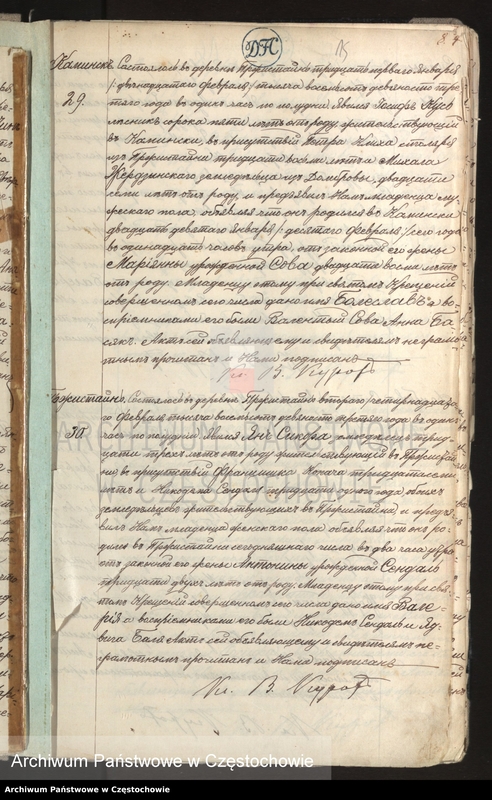 ДК
Каминск. Состоялось въ деревнѣ Пржистайнь тридцать перваго Января
29. /двѣнадцатаго Февраля/ тысяча восемьсотъ девяносто тре
тьяго года въ одинъ часъ по полудни. Явился
сорока пяти лѣтъ отъ роду жительствующій
въ Каминску, въ присутствіи Петра столяра
изъ Пржистайни тридцати восьми лѣтъ и Михала
земледѣльца изъ двадцати
семи лѣтъ отъ роду и предъявилъ Намъ младенца му
жескаго пола, объявляя что онъ родился въ Каминску
двадцать девятаго Января /десятаго Февраля/ сего года
въ одинадцать часовъ утра, отъ законной его жены
Маріянны урожденной Сова двадцати восьми лѣтъ
отъ роду. Младенцу этому при святомъ Крещеніи
совершенномъ сего числа дано имя Болеславъ а во
спріемниками его были Валентый Сова Анна
Актъ сей объявляющему и свидѣтелямъ неграмо
тнымъ прочитанъ и Нами подписанъ
Кс. В.
Пржистайнь. Состоялось въ деревнѣ Пржистайнь втораго /четырнадца
30. го Февраля тысяча восемьсотъ девяносто третьяго года въ одинъ
часъ по полудни. Явился Янъ Сикора, земледѣлецъ трид
цати трехъ лѣтъ отъ роду жительствующій въ Пржистай
ни въ присутствіи Францишка тридцати семи
лѣтъ и Никодема Сендаль тридцати одного года, обоихъ
земледѣльцевъ жительствующихъ въ Пржистайни, и предъя
вилъ Намъ младенца женскаго пола объявляя что онъ ро
дился въ Пржистайни сегодняшняго числа въ два часа утра
отъ законной его жены Антонины урожденной Сендаль
тридцати двухъ лѣтъ отъ роду. Младенцу этому при свя
томъ Крещеніи совершенномъ сего числа дано имя Вале
рія а воспріемниками его были Никодемъ Сендаль и Яд
вига Актъ сей объявляющему и свидѣтелямъ не
грамотнымъ прочитанъ и Нами подписанъ
Кс. В.
ARCHIWUM PAŃSTWOWE
W CZĘSTOCHOWIE
Archiwum Państwowe w Częstochowie
Archiwum Państwowe w Częstochowie